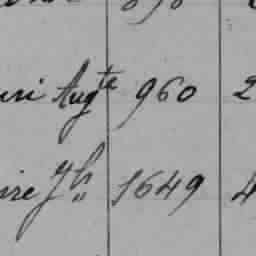 uri Augte 960 2
ire Jh 1649 4